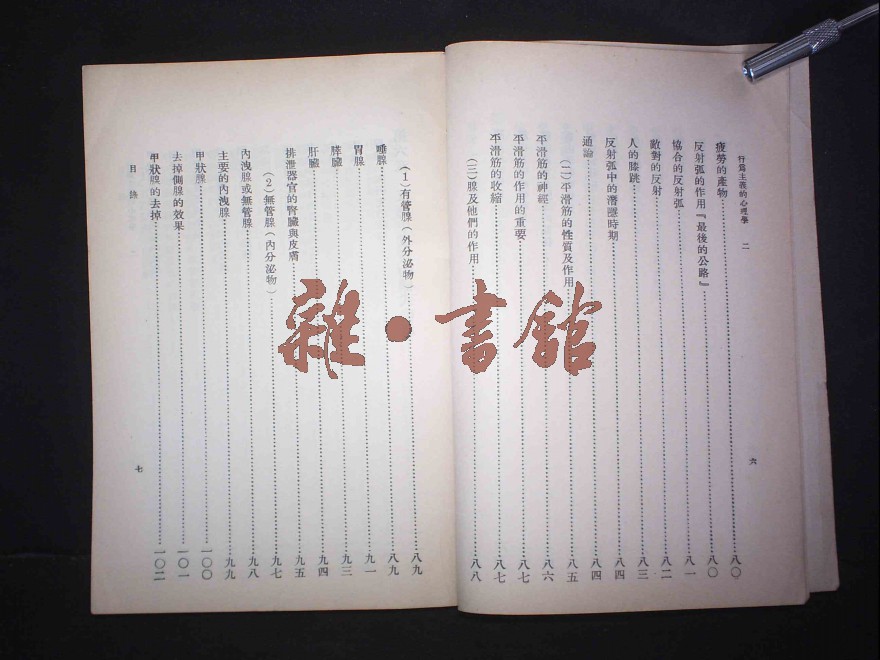 行為主義的心理學 二
六
疲勞的產物 八〇
反射弧的作用『最後的公路』 八〇
協合的反射弧 八一
敵對的反射 八二
人的膝跳 八三
反射弧中的潛匿時期 八四
通論 八四
(二)平滑筋的性質及作用 八五
平滑筋的神經 八六
平滑筋的作用的重要 八七
平滑筋的收縮 八七
(三)腺及他們的作用 八八
(1)有管腺(外分泌物) 八九
唾腺 八九
胃腺 九一
膵臟 九三
肝臟 九四
排泄器官的腎臟與皮膚 九五
(2)無管腺(內分泌物) 九七
內洩腺或無管腺 九八
主要的內洩腺 九九
甲狀腺 一〇〇
去掉側腺的效果 一〇一
甲狀腺的去掉 一〇二
目錄
七
雜·書館